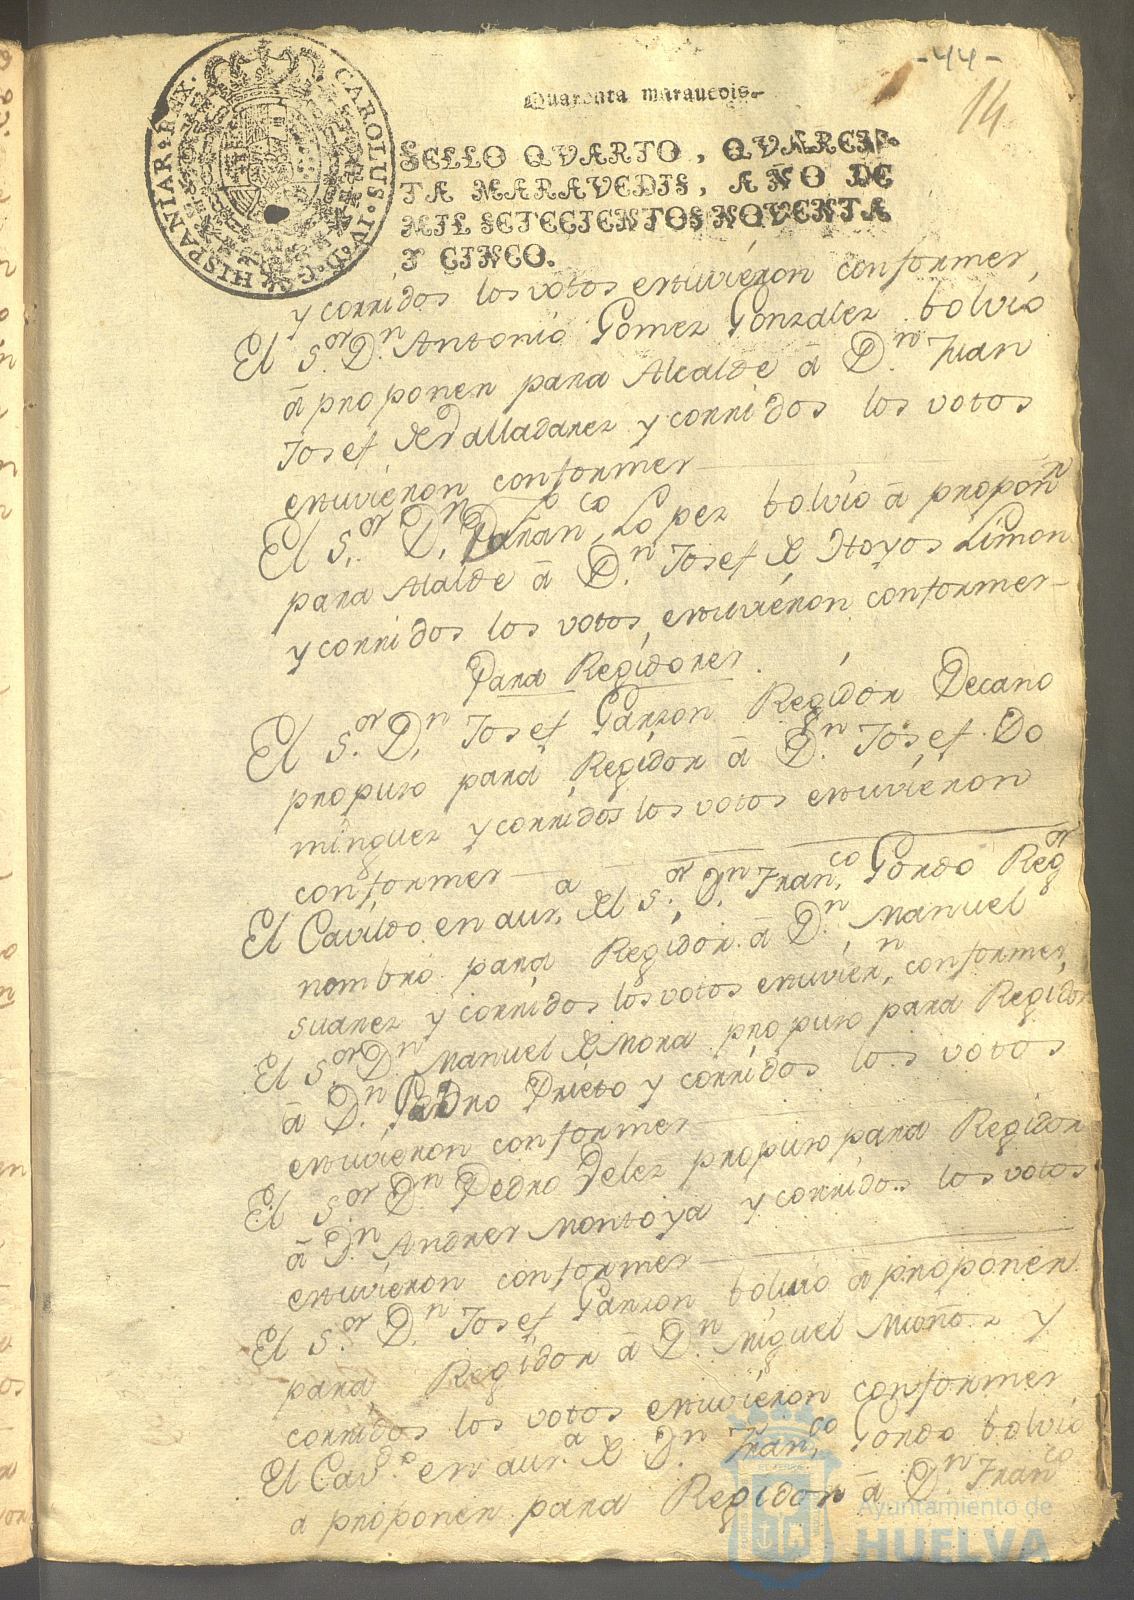 -44-
14
Quarenta maravedis.
CAROLUS·IV·D·G·HISPANIAR·REX·
SELLO QVARTO, QVAREN-
TA MARAVEDIS, AÑO DE
MIL SETECIENTOS NOVENTA
Y CINCO.
y corridos los votos estuvieron conformes,
El S.or D.n Antonio Gomez Gonzalez bolvió
á proponer para Alcalde á D.n Juan
Josef de Valladares y corridos los votos
estuvieron conformes
El S.or D.n Fran.co Lopez bolvió á propon.r
para Alalde á D.n Josef de Hoyos Limon
y corridos los votos, estuvieron conformes
Para Regidores.
El S.or D.n Josef Garzon Regidor Decano
propuso para Regidor á D.n Josef Do
minguez y corridos los votos estuvieron
conformes
El Cavildo en aus.a del S.or D.n Fran.co Gordo Reg.or
nombró para Regidor á D.n Manuel
Suarez y corridos los votos estuvier.n conformes,
El S.or D.n Manuel de Mora propuso para Regidor
á D.n Pedro Prieto y corridos los votos
estuvieron conformes
El S.or D.n Pedro Velez propuso para Regidor
á D.n Andres Montoya y corridos los votos
estuvieron conformes
El S.or D.n Josef Garzon bolvió á proponer
para Regidor á D.n Miguel Muño.z y
corridos los votos estuvieron conformes,
El Cav.do en aus.a de D.n Fran.co Gordo bolvió
a proponer para Regidor á D.n Fran.co
Ayuntamiento de
HUELVA